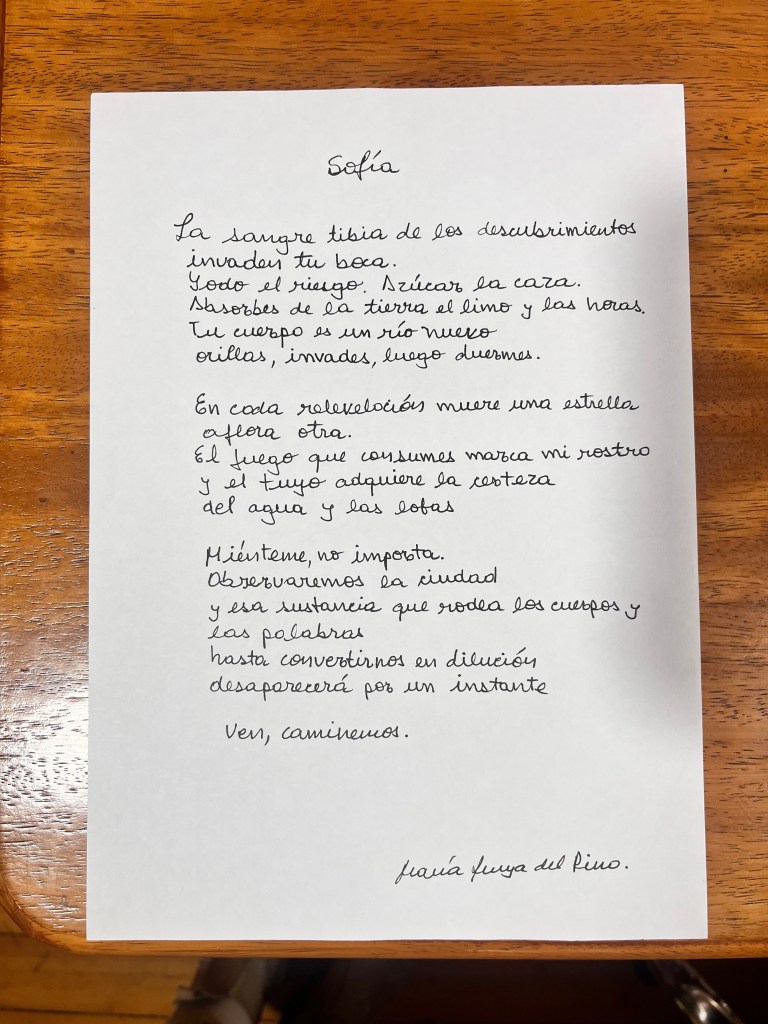 Sofía
La sangre tibia de los descubrimientos
invaden tu boca.
Todo el riesgo. Azúcar la caza.
Absorbes de la tierra el limo y las horas.
Tu cuerpo es un río nuevo
orillas, invades, luego duermes.
En cada muere una estrella
aflora otra.
El fuego que consumes marca mi rostro
y el tuyo adquiere la certeza
del agua y las lobas
Miénteme, no importa.
Observaremos la ciudad
y esa sustancia que rodea los cuerpos y
las palabras
hasta convertirnos en dilución
desaparecerá por un instante
Ven, caminemos.
María del Pino.